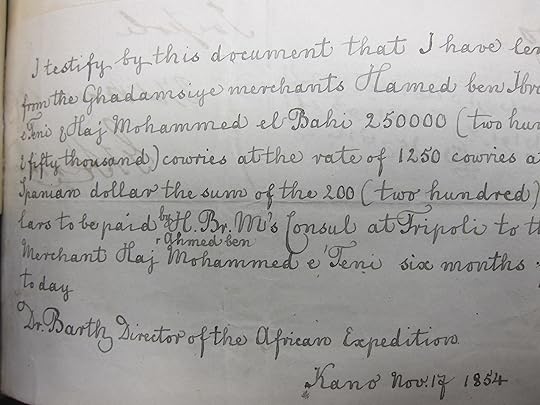 I testify by this document that I have len
from the Ghadamsiye merchants Hamed ben Ibra
e'Teni & Haj Mohammed el Bahi 250000 (two hun
& fifty thousand) cowries at the rate of 1250 cowries a
Spanian dollar the sum of the 200 (two hundred)
lars to be paid by H. Br. M's Consul at Tripoli to th
Merchant Haj Ahmed ben Mohammed e'Teni six months
today
Dr. Barth, Director of the African Expedition
Kano Nov. 17 1854